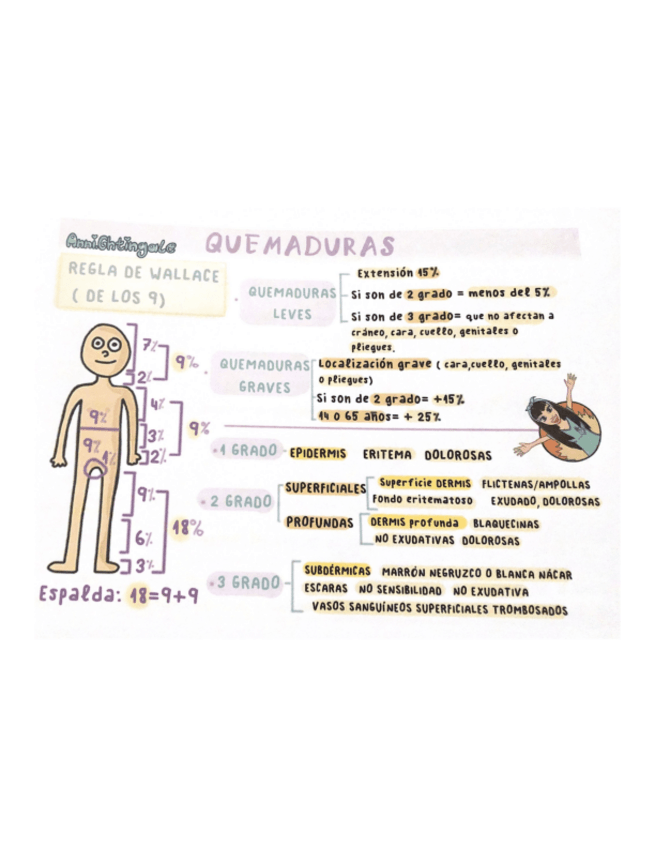 Anni.Ghtingale QUEMADURAS
REGLA DE WALLACE
( DE LOS 9)
QUEMADURAS
LEVES
Extensión 15%
Si son de 2 grado = menos del 5%
Si son de 3 grado= que no afectan a
cráneo, cara, cuello, genitales o
pliegues.
QUEMADURAS
GRAVES
Localización grave ( cara,cuello, genitales
o pliegues)
Si son de 2 grado= +15%
14 0 65 años= + 25%
7%
2%
9%
4%
3%
2%
9%
9%
9%
1%
9%
6%
3%
18%
Espalda: 18=9+9
1 GRADO EPIDERMIS ERITEMA DOLOROSAS
2 GRADO
SUPERFICIALES
Superficie DERMIS FLICTENAS/AMPOLLAS
Fondo eritematoso EXUDADO, DOLOROSAS
PROFUNDAS
DERMIS profunda BLAQUECINAS
NO EXUDATIVAS DOLOROSAS
3 GRADO
SUBDÉRMICAS MARRÓN NEGRUZCO O BLANCA NÁCAR
ESCARAS NO SENSIBILIDAD NO EXUDATIVA
VASOS SANGUÍNEOS SUPERFICIALES TROMBOSADOS